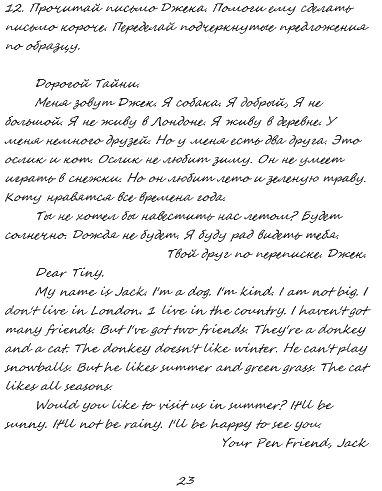 12. Прочитай письмо Джека. Помоги ему сделать
письмо короче. Переделай подчеркнутые предложения
по образцу.
Дорогой Тайни.
Меня зовут Джек. Я собака. Я добрый, Я не
большой. Я не живу в Лондоне. Я живу в деревне. У
меня немного друзей. Но у меня есть два друга. Это
ослик и кот. Ослик не любит зиму. Он не умеет
играть в снежки. Но он любит лето и зеленую траву.
Коту нравятся все времена года.
Ты не хотел бы навестить нас летом? Будет
солнечно. Дождя не будет. Я буду рад видеть тебя.
Твой друг по переписке. Джек.
Dear Tiny.
My name is Jack. I'm a dog. I'm kind. I am not big. I
don't live in London. I live in the country. I haven't got
many friends. But I've got two friends. They're a donkey
and a cat. The donkey doesn't like winter. He can't play
snowballs. But he likes summer and green grass. The cat
likes all seasons.
Would you like to visit us in summer? It'll be
sunny. It'll not be rainy. I'll be happy to see you.
Your Pen Friend, Jack
23